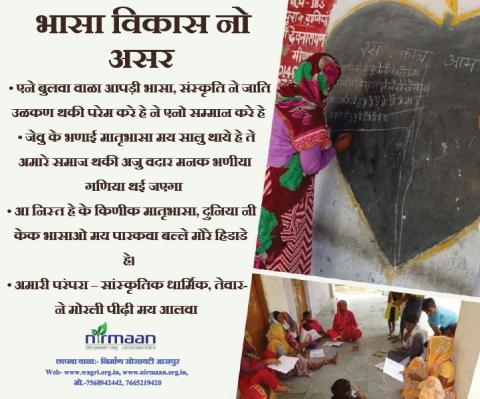 भासा विकास नो
असर
• एने बुलवा वाळा आपड़ी भासा, संस्कृति ने जाति
उळकण थकी परेम करे हे ने एनो सम्मान करे हे
• जेवु के भणाई मातृभासा मय सालु थाये हे ते
अमारे समाज थकी अजु वदार मनक भणीया
गणिया थई जएगा
• आ निस्त हे के किणीक मातृभासा, दुनिया नी
केक भासाओ मय पारकवा बल्ले मोरे हिडाडे
हे।
• अमारी परंपरा – सांस्कृतिक धार्मिक, तेवार-
ने मोरली पीढ़ी मय आलवा
nirmaan
empowering communities
छापवा वाळा:- निर्माण सोसायटी आसपुर
Web- www.wagri.org.in, www.nirmaan.org.in,
मो.-7568942442, 7665219420
देवनारायण
रस काच आम